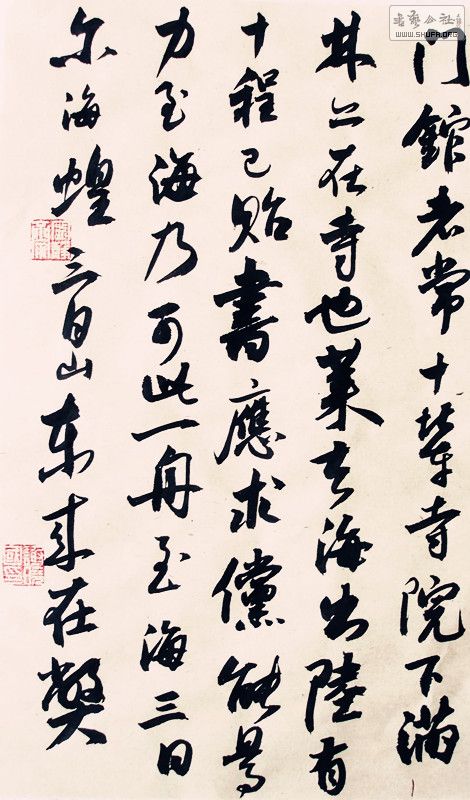 書藝公社
WWW.SHUFA.ORG
門館老常十輩寺院下滿
林在寺也萊去海出陸有
十程已貽書應求儻能易
力至海乃可此一舟至海三日
尔海蝗云自山東來在弊